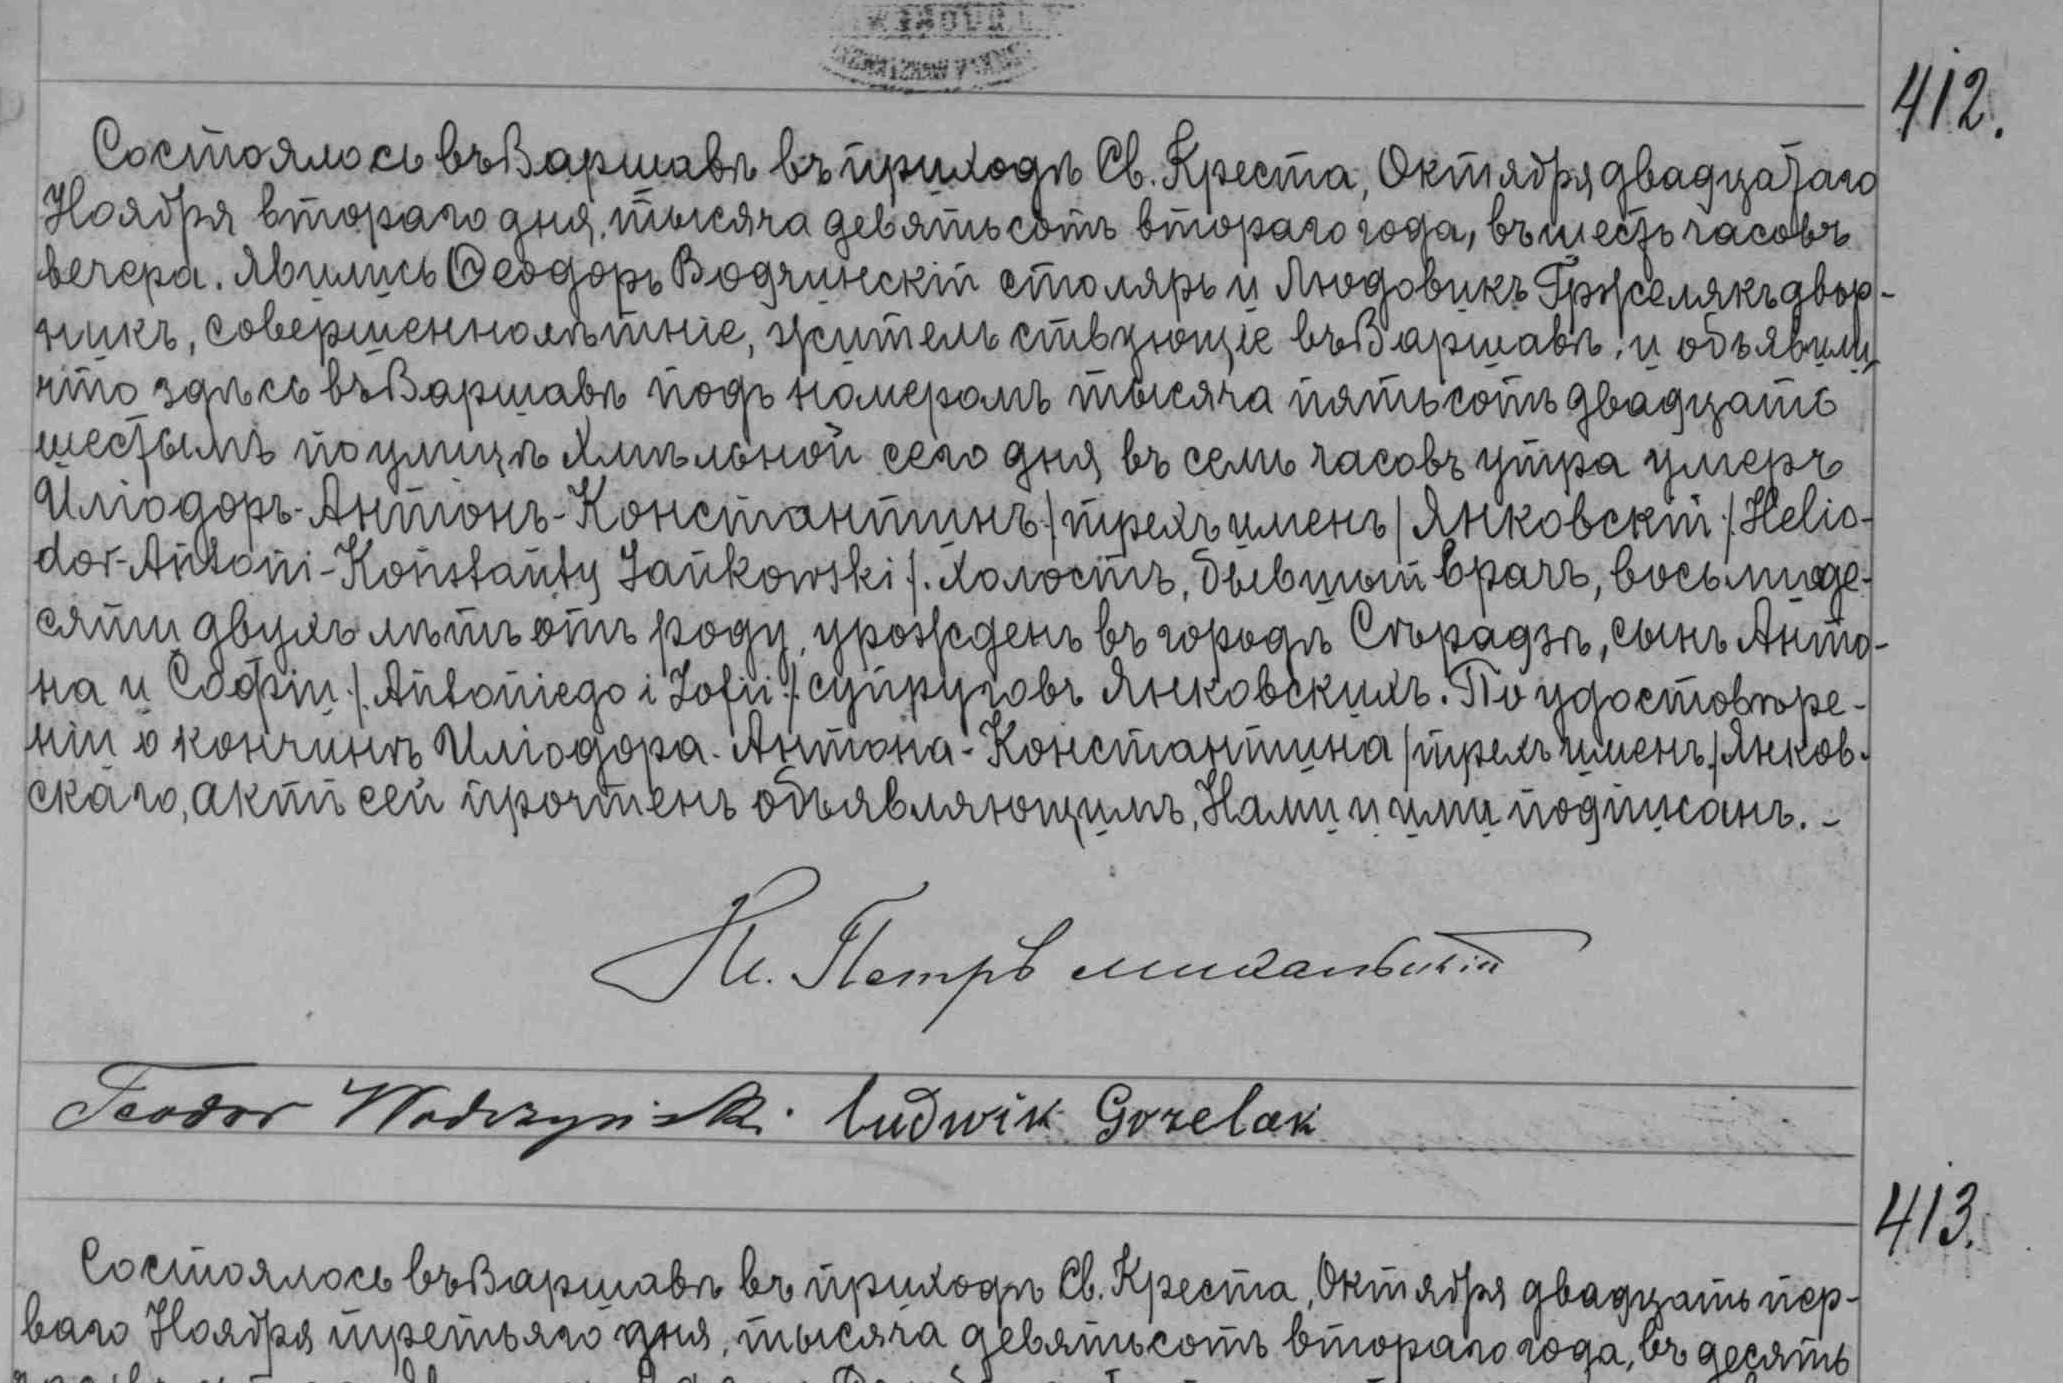 412.
Состоялось въ Варшавѣ въ приходѣ Св. Креста, Октября двадцатаго
Ноября втораго дня, тысяча девятьсотъ втораго года, въ шесть часовъ
вечера. Явились Ѳеодоръ Водчинскій столяръ и Людовикъ Гржелякъ двор-
никъ, совершеннолѣтніе, жительствующіе въ Варшавѣ, и объявили,
что здѣсь въ Варшавѣ подъ номеромъ тысяча пятьсотъ двадцать
шестымъ по улицѣ Хмѣльной сего дня, въ семь часовъ утра умеръ
Иліодоръ-Антонъ-Константинъ /трехъ именъ/ Янковскій /:Helio-
dor-Antoni-Konstanty Jankowski/. Холостъ, бывшый врачъ, восьмиде-
сяти двухъ лѣтъ отъ роду, урожденъ въ городѣ Сѣрадзѣ, сынъ Анто-
на и Софіи /:Antoniego i Zofii:/ супруговъ Янковскихъ. По удостовѣре-
ніи о кончинѣ Иліодора-Антона-Константина /трехъ именъ/ Янков-
скаго, актъ сей прочтенъ объявляющимъ, Нами и ими подписанъ. -
Кс. Петръ
Teodor Wodczyński. Ludwik Grzelak
413.
Состоялось въ Варшавѣ въ приходѣ Св. Креста, Октября двадцать пер-
ваго Ноября третьяго дня, тысяча девятьсотъ втораго года, въ десять